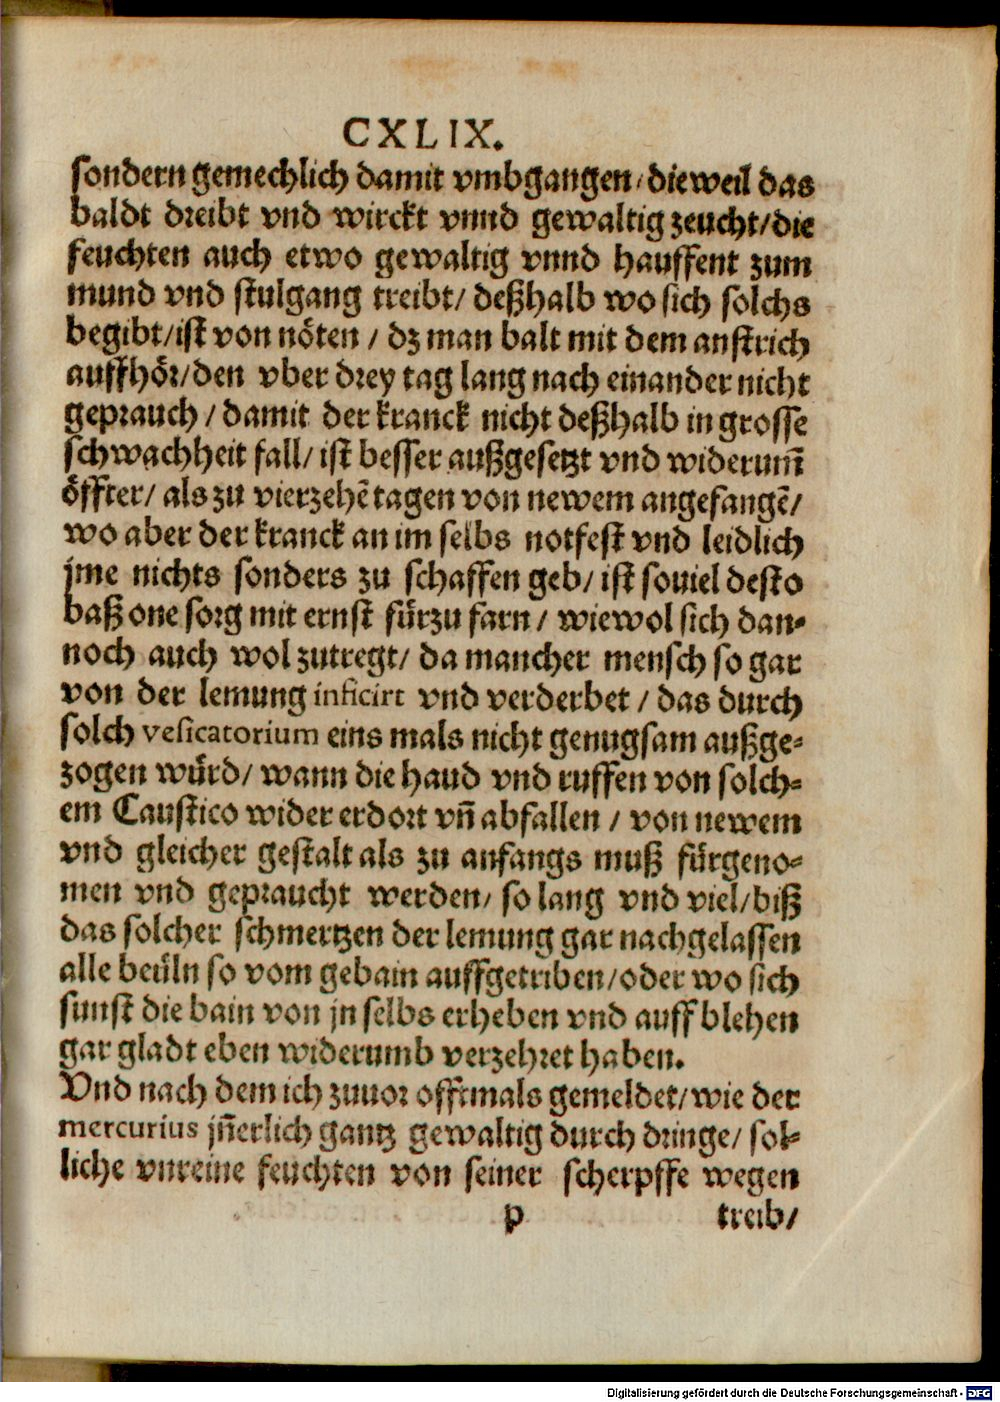 CXLIX.
sondern gemechlich damit vmbgangen/ dieweil das
baldt dreibt vnd wirckt vnnd gewaltig zeucht/die
feuchten auch etwo gewaltig vnnd hauffent zum
mund vnd stulgang treibt/ deßhalb wo sich solchs
begibt/ist von nöten / dz man balt mit dem anstrich
auffhör/den vber drey tag lang nach einander nicht
geprauch / damit der kranck nicht deßhalb in grosse
schwachheit fall/ ist besser außgesetzt vnd widerum̃
öffter/ als zu vierzehẽ tagen von newem angefangẽ/
wo aber der kranck an im selbs notfest vnd leidlich
jme nichts sonders zu schaffen geb/ ist souiel desto
baß one sorg mit ernst fürzu farn / wiewol sich dan-
noch auch wol zutregt/ da mancher mensch so gar
von der lemung inficirt vnd verderbet / das durch
solch vesicatorium eins mals nicht genugsam außge-
zogen würd/ wann die haud vnd ruffen von solch-
em Caustico wider erdort vñ abfallen / von newem
vnd gleicher gestalt als zu anfangs muß fürgeno-
men vnd gepraucht werden/ so lang vnd viel/biß
das solcher schmertzen der lemung gar nachgelassen
alle beüln so vom gebain auffgetriben/oder wo sich
sunst die bain von jn selbs erheben vnd auff blehen
gar gladt eben widerumb verzehret haben.
Vnd nach dem ich zuuor offtmals gemeldet/wie der
mercurius jñerlich gantz gewaltig durch dringe/ sol-
liche vnreine feuchten von seiner scherpffe wegen
p treib/
Digitalisierung gefördert durch die Deutsche Forschungsgemeinschaft - DFG